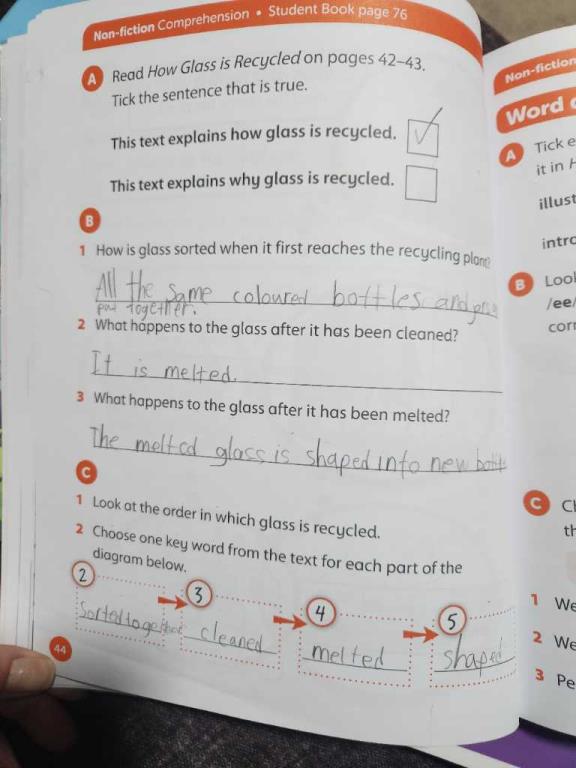 Non-fiction Comprehension • Student Book page 76
A Read How Glass is Recycled on pages 42–43.
Tick the sentence that is true.
This text explains how glass is recycled.
This text explains why glass is recycled.
B
1 How is glass sorted when it first reaches the recycling plant?
All the same coloured bottles and
put together.
2 What happens to the glass after it has been cleaned?
It is melted.
3 What happens to the glass after it has been melted?
The melted glass is shaped into new
C
1 Look at the order in which glass is recycled.
2 Choose one key word from the text for each part of the
diagram below.
2 3 4 5
Sorted together cleaned melted shaped
44
Non-fiction
Word
A Tick
it in
illust
intro
B Look
/ee/
corr
C
1 We
2 We
3 Pe